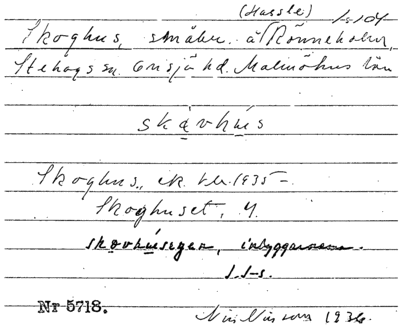 (Hassle) 1:104
Skoghus, småbr. å Rönneholm,
Stehags sn. Onsjö hd. Malmöhus län
skåvhús
Skoghus, ek. kbl. 1935-
Skoghuset, y.
skovhúsingar, inbyggarnamn.
J. J-s.
Nr 5718.
Nils Nilsson 1936.